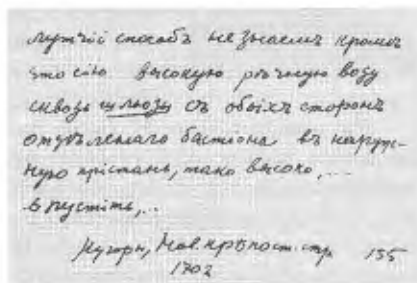 лутчіи способъ не знаемъ кромѣ
что сію высокую рѣчную воду
сквозь шлюзы съ обоихъ сторонъ
отдѣленаго бастіона въ наруж-
ную прістань, тако высоко,...
впустіть,..
Кугорн, Нов. крѣпост. стр. 155
1702